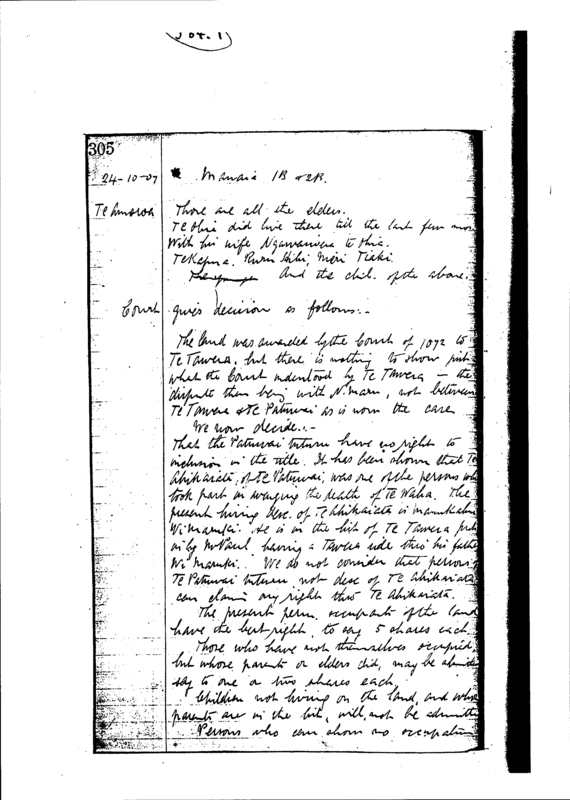 304.1
305
24-10-07 Manaia 1B & 2B.
Te Amoroa Those are all the elders.
Te Ohia did live there till the last few
With his wife te Ohia.
Te Kapua. Hihi, Meri Tiaki.
And the chil. of the above.
Court gives decision as follows:-
The land was awarded by the Court of 1872 to
Te Tawera, but there is nothing to show just
what the Court understood by Te Tawera - the
dispute then being with N. Maru, not between
Te Tawera & Te Patuwai as is now the case.
We now decide:-
That the Patuwai have no right to
inclusion in the title. It has been shown that Te
Ahikaiata, of Te Patuwai, was one of the persons who
took part in avenging the death of Te Waha. The
present living desc. of Te Ahikaiata is
Wi Maruki. He is in the list of Te Tawera put
in by Mr Paul having a Tawera side thro' his father
Wi Maruki. We do not consider that persons of
Te Patuwai not desc of Te Ahikaiata
can claim any right thro' Te Ahikaiata.
The present perm. occupants of the land
have the best right, to say 5 shares each.
Those who have not themselves occupied,
but whose parents or elders did, may be admitted
say to one or two shares each.
Children not living on the land, and whose
parents are in the list, will not be admitted
Persons who can show no occupation